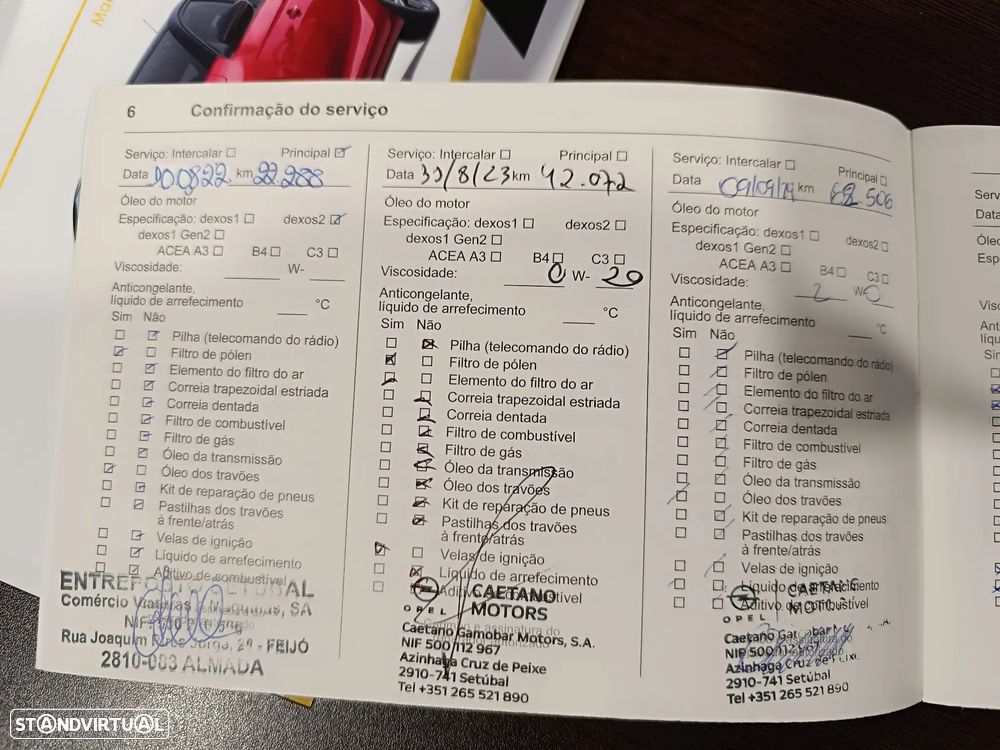 6 Confirmação do serviço
Serviço: Intercalar Principal
Data km 22.288
Óleo do motor
Especificação: dexos1 dexos2
dexos1 Gen2
ACEA A3 B4 C3
Viscosidade: W-
Anticongelante,
líquido de arrefecimento °C
Sim Não
Pilha (telecomando do rádio)
Filtro de pólen
Elemento do filtro do ar
Correia trapezoidal estriada
Correia dentada
Filtro de combustível
Filtro de gás
Óleo da transmissão
Óleo dos travões
Kit de reparação de pneus
Pastilhas dos travões
à frente/atrás
Velas de ignição
Líquido de arrefecimento
Aditivo de combustível
Comércio
Rua Joaquim FEIJÓ
2810-083 ALMADA
Serviço: Intercalar Principal
Data /8/23 km 42.072
Óleo do motor
Especificação: dexos1 dexos2
dexos1 Gen2
ACEA A3 B4 C3
Viscosidade: 0 W- 20
Anticongelante,
líquido de arrefecimento °C
Sim Não
Pilha (telecomando do rádio)
Filtro de pólen
Elemento do filtro do ar
Correia trapezoidal estriada
Correia dentada
Filtro de combustível
Filtro de gás
Óleo da transmissão
Óleo dos travões
Kit de reparação de pneus
Pastilhas dos travões
à frente/atrás
Velas de ignição
Líquido de arrefecimento
Aditivo de combustível
OPEL
CAETANO
MOTORS
Caetano Gamobar Motors, S.A.
NIF 500 112 967
Azinhaga Cruz de Peixe
2910-741 Setúbal
Tel +351 265 521 890
Serviço: Intercalar Principal
Data 09/09/ km 68.506
Óleo do motor
Especificação: dexos1 dexos2
dexos1 Gen2
ACEA A3 B4 C3
Viscosidade: 2 W 0
Anticongelante,
líquido de arrefecimento °C
Sim Não
Pilha (telecomando do rádio)
Filtro de pólen
Elemento do filtro do ar
Correia trapezoidal estriada
Correia dentada
Filtro de combustível
Filtro de gás
Óleo da transmissão
Óleo dos travões
Kit de reparação de pneus
Pastilhas dos travões
à frente/atrás
Velas de ignição
Líquido de arrefecimento
Aditivo de combustível
OPEL
CAETANO
MOTORS
Caetano
NIF 500 112 967
Azinhaga Cruz de Peixe
2910-741 Setúbal
Tel +351 265 521 890
STANDVIRTUAL